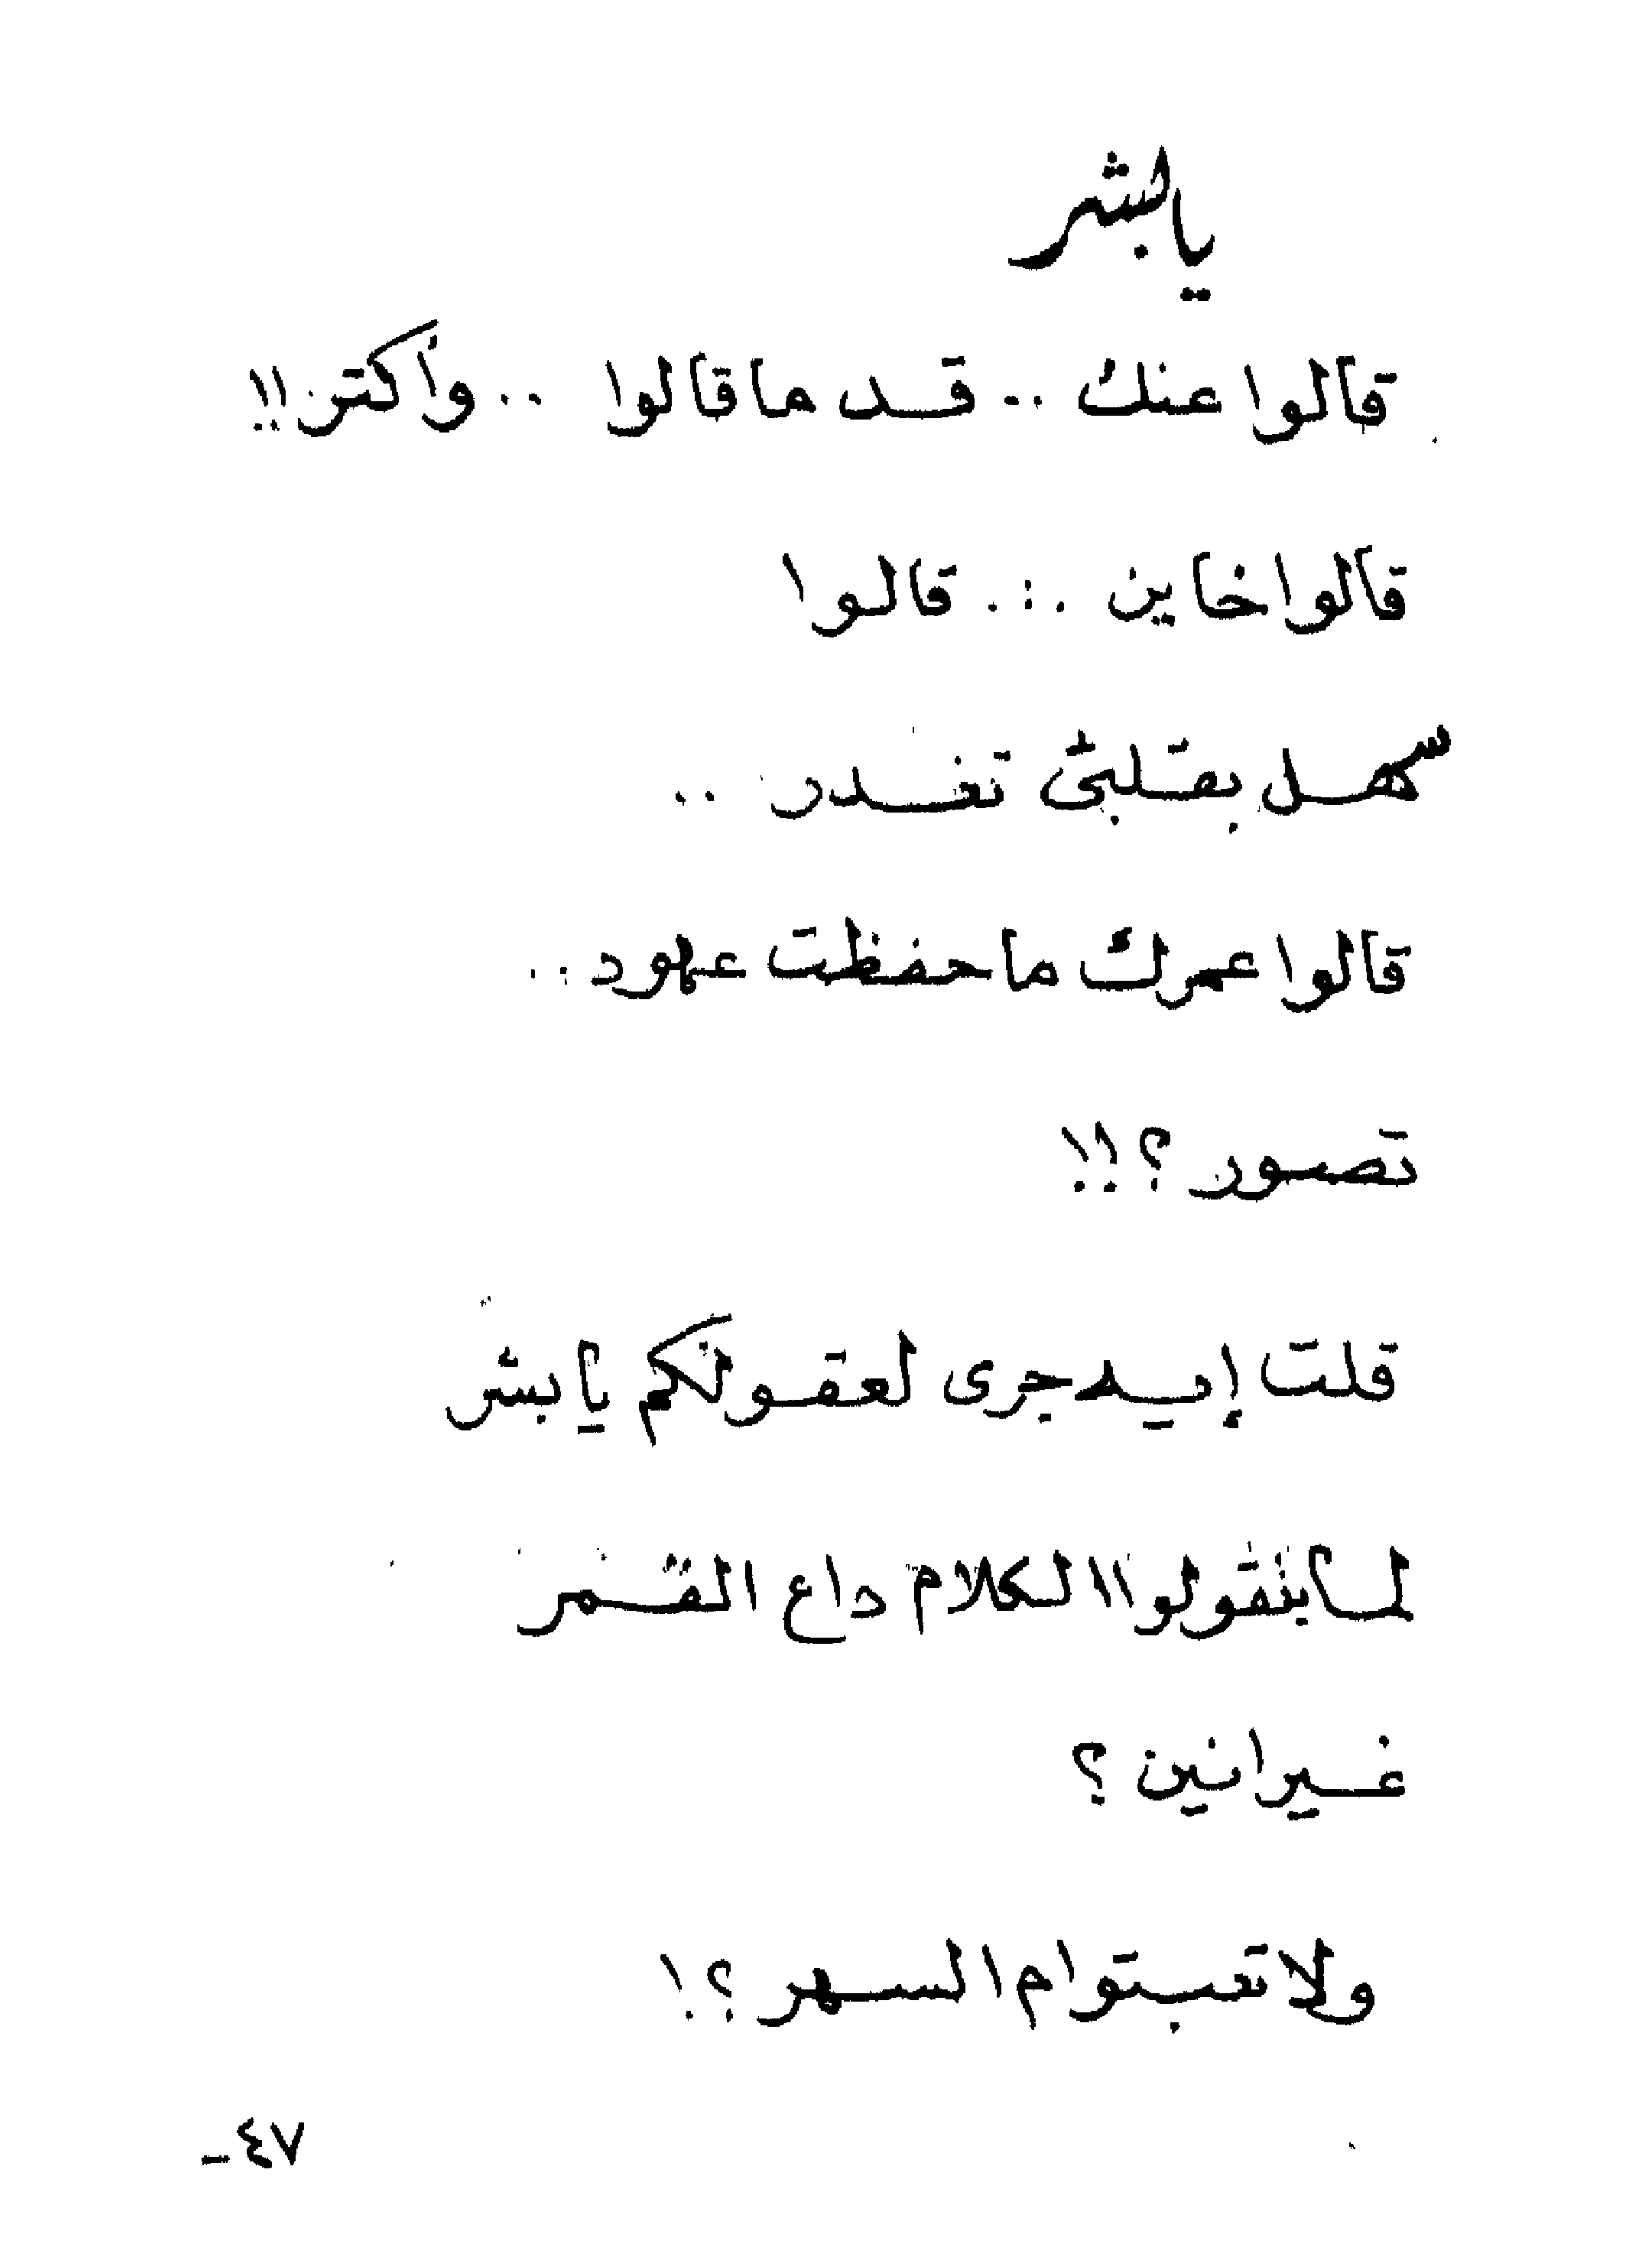 يالبشر
قالوا عنك .. قد ما قالوا .. وأكتر!!
قالوا خاين ... قالوا
سهل بقلبى تغدر ..
قالوا عمرك ما حفظت عهود ..
تصور ؟!!
قلت إيه جرى لعقولكم يا بشر
لما بتقولوا الكلام داع القمر
غيرانين ؟
ولا تعبتوا م السهر ؟!
٤٧-